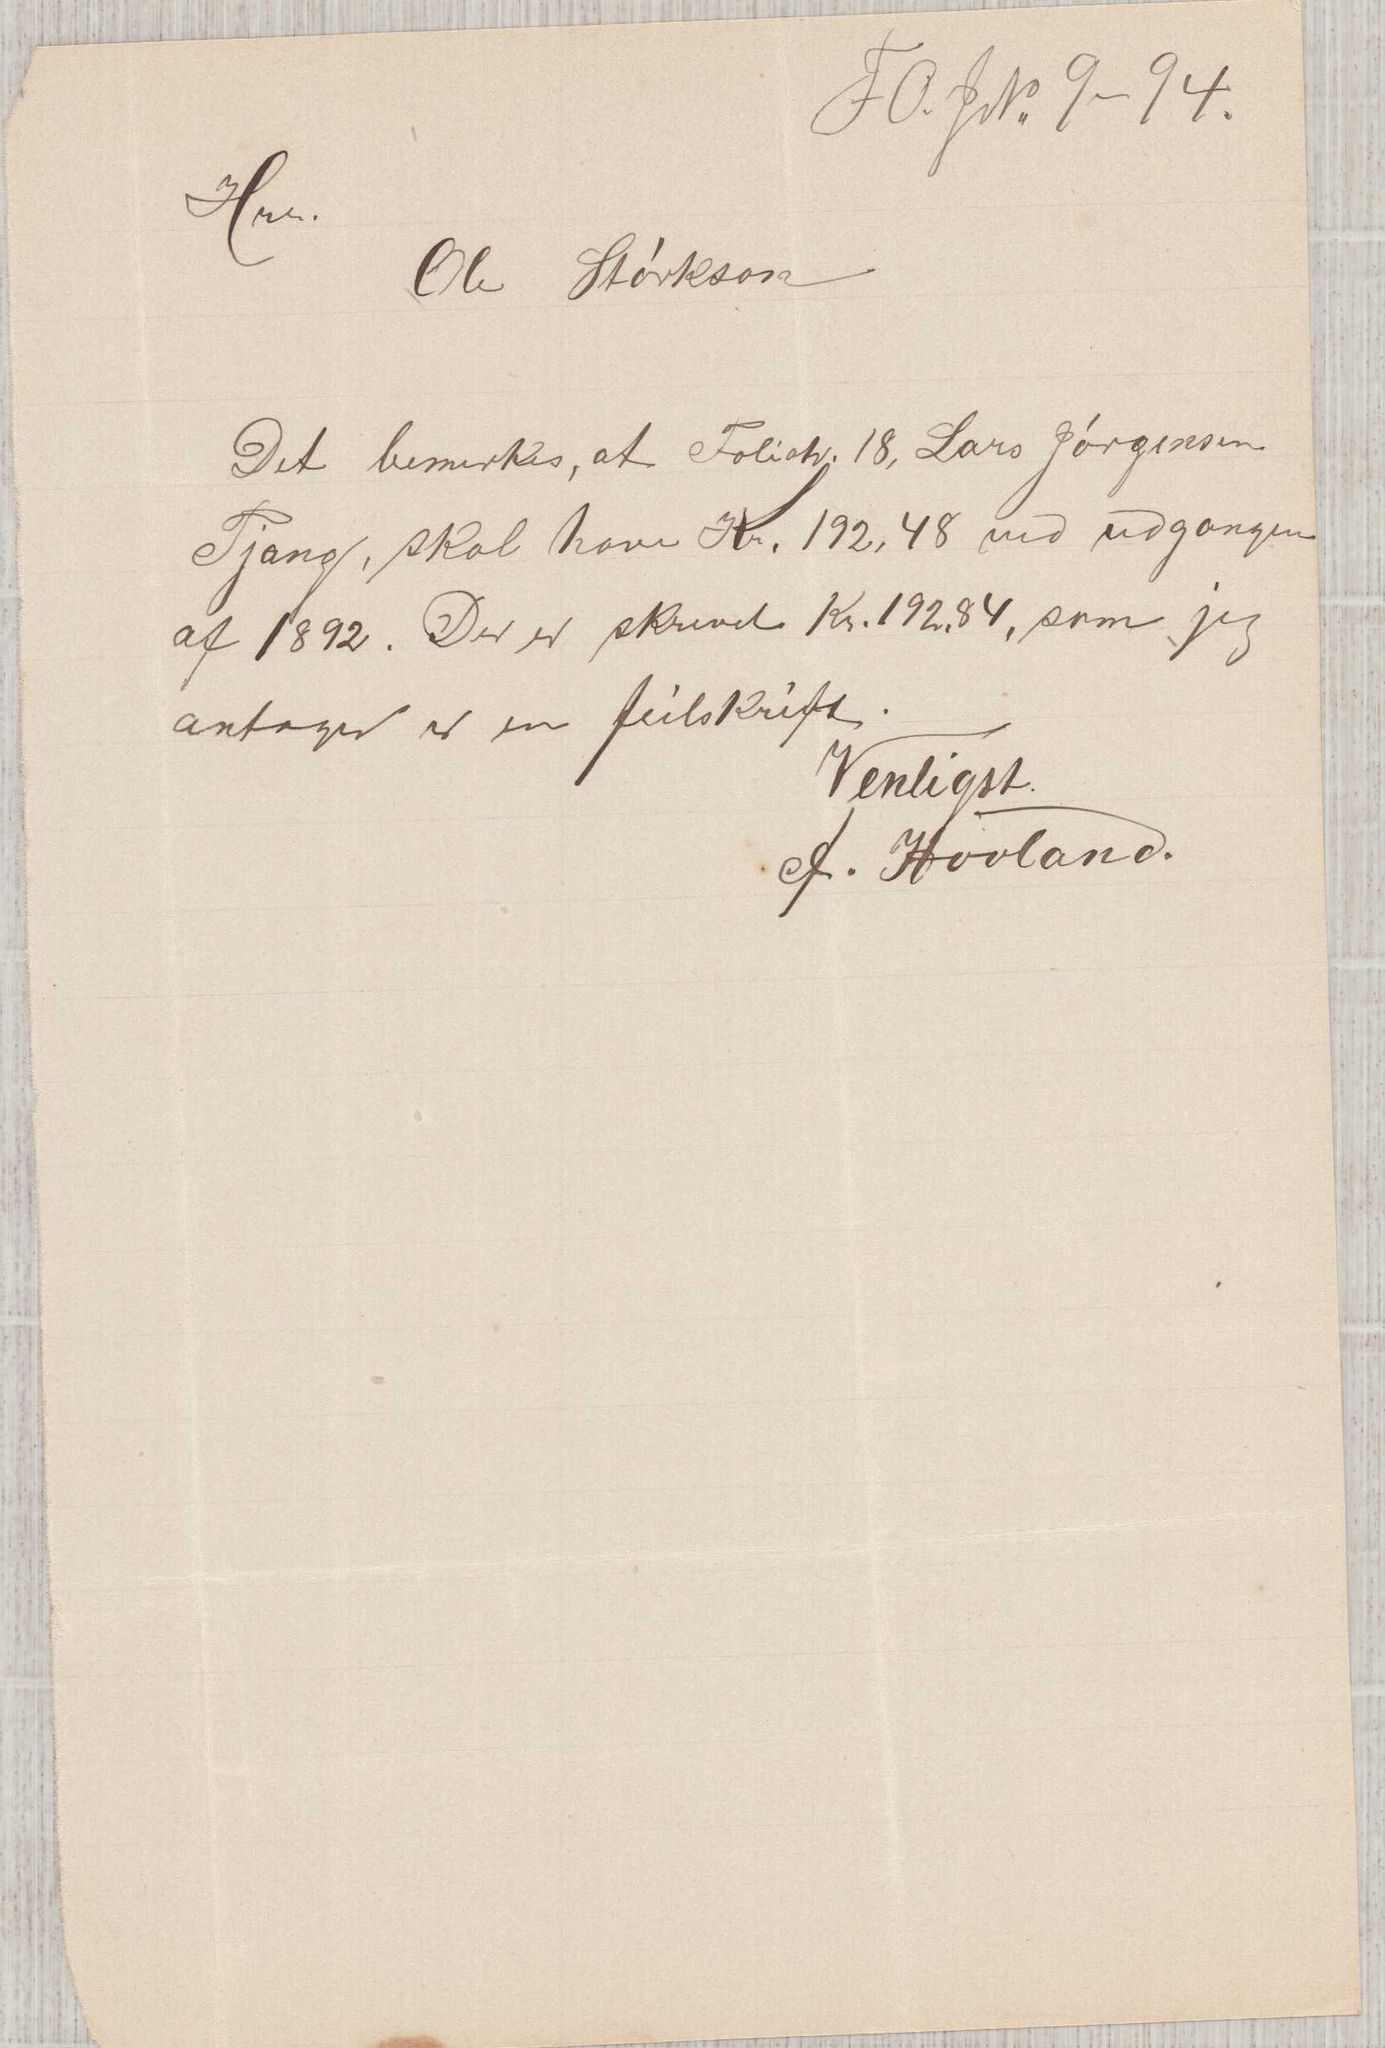 F.O. J.N. 9-94.
Hrr.
Ole Størkson
Det bemerkes, at Folio 18, Lars Jørgensen
Tjang, skal have Kr. 192,48 ved udgangen
af 1892. Der er skrevet Kr. 192,84, som jeg
antager er en feilskrift.
Venligst.
J. Hovland.